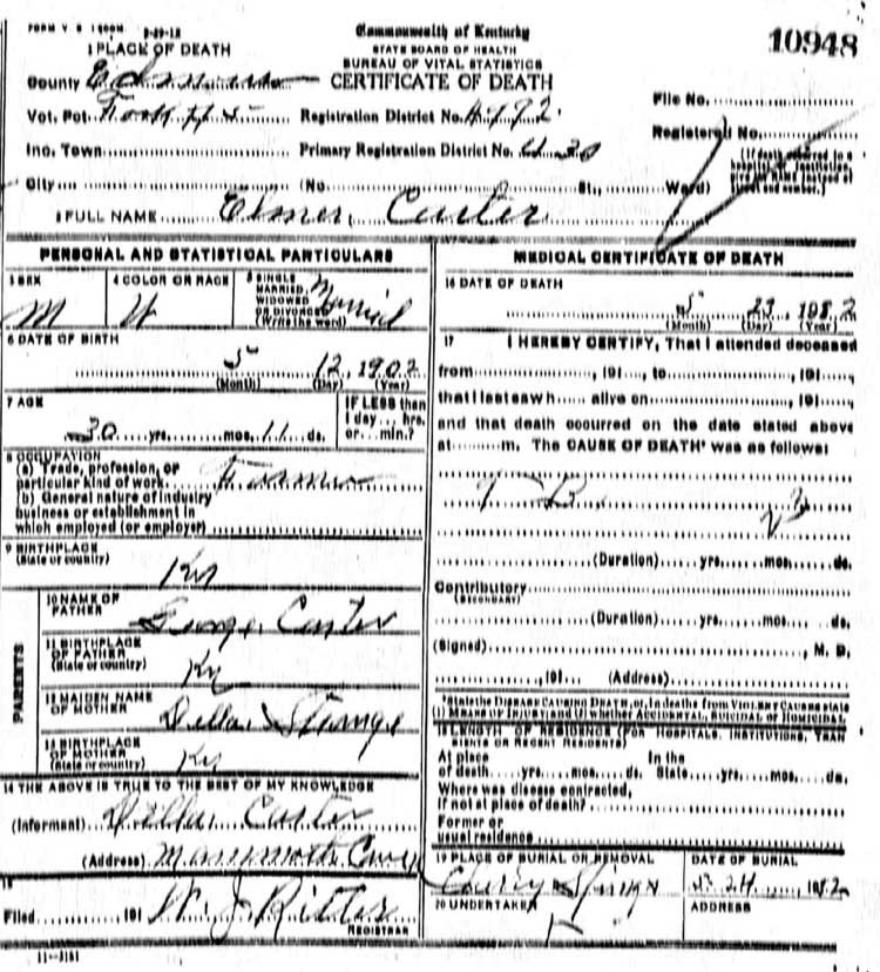 FORM V. S. 1 9-29-12
Commonwealth of Kentucky
STATE BOARD OF HEALTH
BUREAU OF VITAL STATISTICS
CERTIFICATE OF DEATH
10948
1 PLACE OF DEATH
County
Vot. Pct.
Registration District No. 4992
Inc. Town
Primary Registration District No.
City (No. St., Ward)
File No.
Registered No.
(If death occurred in a hospital or institution, give its NAME instead of street and number.)
2 FULL NAME Elmer Carter
PERSONAL AND STATISTICAL PARTICULARS
3 SEX
M
4 COLOR OR RACE
W
5 SINGLE, MARRIED, WIDOWED OR DIVORCED
(Write the word)
Married
6 DATE OF BIRTH
5 12, 1902
(Month) (Day) (Year)
7 AGE
30 yrs. mos. 11 ds.
IF LESS than 1 day... hrs. or... min.?
8 OCCUPATION
(a) Trade, profession, or particular kind of work Farmer
(b) General nature of industry business or establishment in which employed (or employer)
9 BIRTHPLACE
(State or country)
Ky
PARENTS
10 NAME OF FATHER
George Carter
11 BIRTHPLACE OF FATHER
(State or country)
Ky
12 MAIDEN NAME OF MOTHER
Della
13 BIRTHPLACE OF MOTHER
(State or country)
Ky
14 THE ABOVE IS TRUE TO THE BEST OF MY KNOWLEDGE
(Informant) Della Carter
(Address) Mammoth Cave
15
Filed 191 W. J. Ritter
REGISTRAR
11-3151
MEDICAL CERTIFICATE OF DEATH
16 DATE OF DEATH
5 23, 1932
(Month) (Day) (Year)
17 I HEREBY CERTIFY, That I attended deceased
from , 191 , to , 191 ,
that I last saw h alive on , 191 ,
and that death occurred on the date stated above
at m. The CAUSE OF DEATH* was as follows:
T B
23
(Duration) yrs. mos. ds.
Contributory
(SECONDARY)
(Duration) yrs. mos. ds.
(Signed) , M. D.
, 191 (Address)
*State the DISEASE CAUSING DEATH, or, in deaths from VIOLENT CAUSES state
(1) MEANS OF INJURY; and (2) whether ACCIDENTAL, SUICIDAL or HOMICIDAL.
18 LENGTH OF RESIDENCE (FOR HOSPITALS, INSTITUTIONS, TRANSIENTS OR RECENT RESIDENTS)
At place of death yrs. mos. ds. In the State yrs. mos. ds.
Where was disease contracted, if not at place of death?
Former or usual residence
19 PLACE OF BURIAL OR REMOVAL
Cherry Springs
DATE OF BURIAL
5 24, 1932
20 UNDERTAKER
ADDRESS